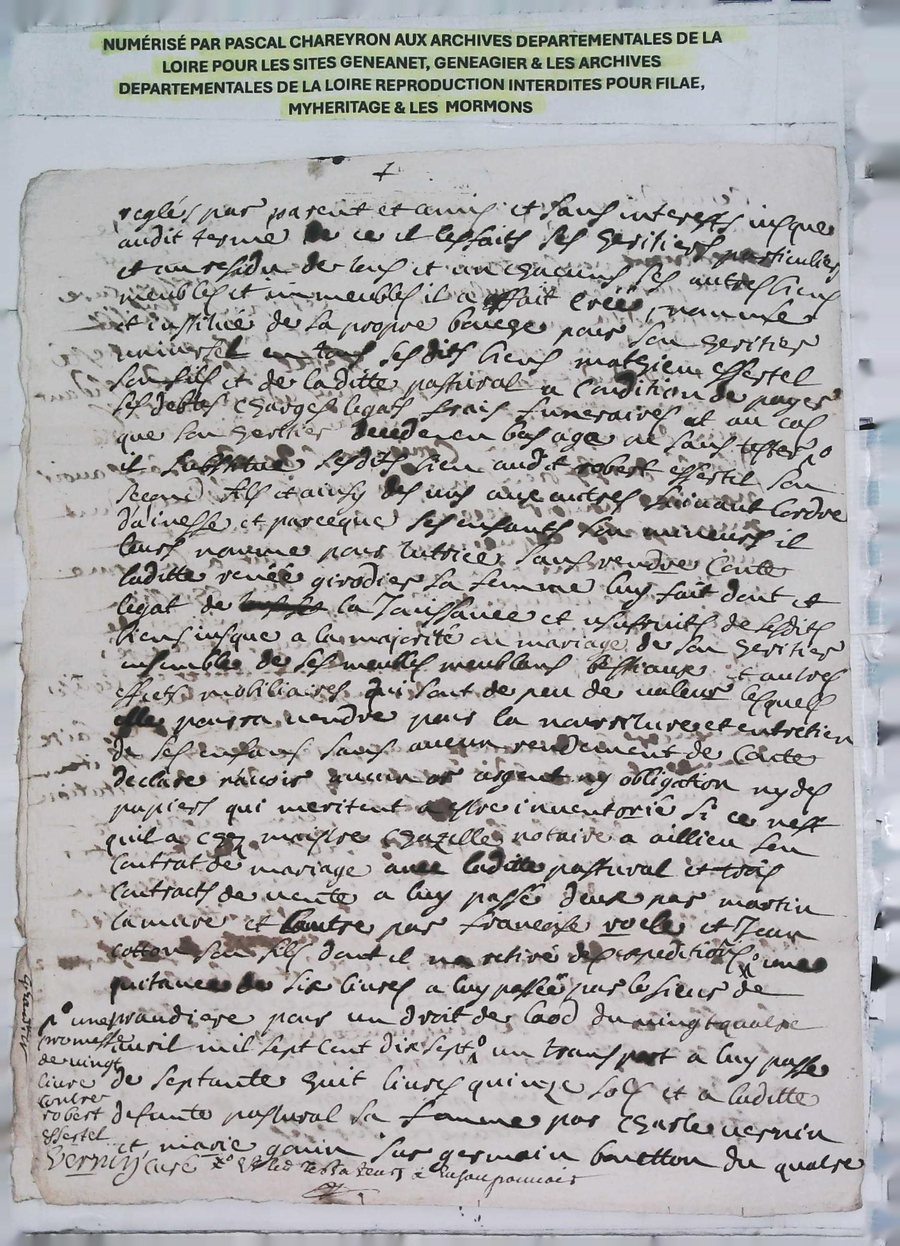 NUMÉRISÉ PAR PASCAL CHAREYRON AUX ARCHIVES DEPARTEMENTALES DE LA
LOIRE POUR LES SITES GENEANET, GENEAGIER & LES ARCHIVES
DEPARTEMENTALES DE LA LOIRE REPRODUCTION INTERDITES POUR FILAE,
MYHERITAGE & LES MORMONS
reglés par parent et amis et sans interests jusque
audit terme de ce il les faits ses heritiers particuliers
et au residu de tous et un chacuns ses autres biens
meubles et immeubles il a fait créé nommé
et institué de sa propre bouche pour son heritier
universel en tous sesdits biens mathieu essertel
son fils et de laditte pastural a condition de payer
ses debtes charges legats frais funeraires et au cas
que son heritier decede en bas age ou sans tester
il substitue sesdits bien audit robert essertel son
second fils et ainsy des uns aux autres suivant lordre
d'ainesse et parceque ses enfants son mineurs il
leurs nomme pour tutrice sans rendre conte
laditte renée girodier sa femme luy fait dont et
legat de la Jouissance et usufruits de sesdits
biens jusque a la majorité ou mariage de son heritier
ensemble de ses meubles meublans bestiaux et autres
effets mobiliaires qui sont de peu de valeur lesquels
elle pourra vendre pour la nourriture et entretien
de ses enfans sans aucun rendement de conte
declare navoir aucun or argent ny obligation ny des
papiers qui meritent a estre inventorié si ce nest
quil a chez maistre Chazelle notaire a aillieu son
contrat de mariage avec laditte pastural et trois
contracts de vente a luy passé deux par martin
lamure et lautre par francoise et Jean
cotton son fils dont il na retiré dexpeditions une
quitance de six livres a luy passée par le sieur de
prandiere pour un droit de laod du vingt quatre
avril mil sept cent dix sept un transport a luy passé
de septante huit livres quinze sols et a laditte
defunte pastural sa femme par Charle vernin
et marie gonin sur germain bouetton du quatre
une
promesse
de vingt
livre
contre
robert
essertel
Verniy curé